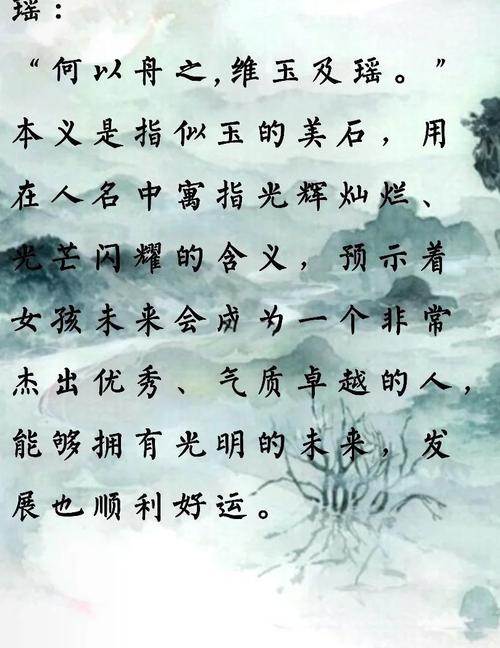 瑶：
“何以舟之,维玉及瑶。”
本义是指似玉的美石，用
在人名中寓指光辉灿烂、
光芒闪耀的含义，预示着
女孩未来会成为一个非常
杰出优秀、气质卓越的人，
能够拥有光明的未来，发
展也顺利好运。